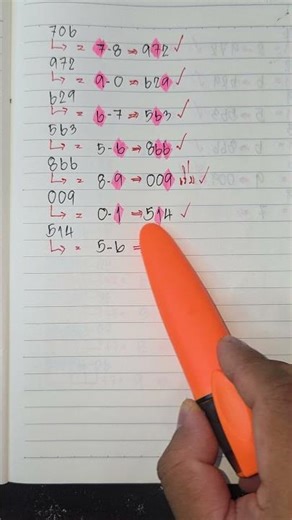 706
↳ = 7-8 ⇒ 972 ✓
972
↳ = 9-0 ⇒ 629 ✓
629
↳ = 6-7 ⇒ 563 ✓
563
↳ = 5-6 ⇒ 866 ✓
866
↳ = 8-9 ⇒ 009 ✓
009
↳ = 0-1 ⇒ 514 ✓
514
↳ = 5-6 =